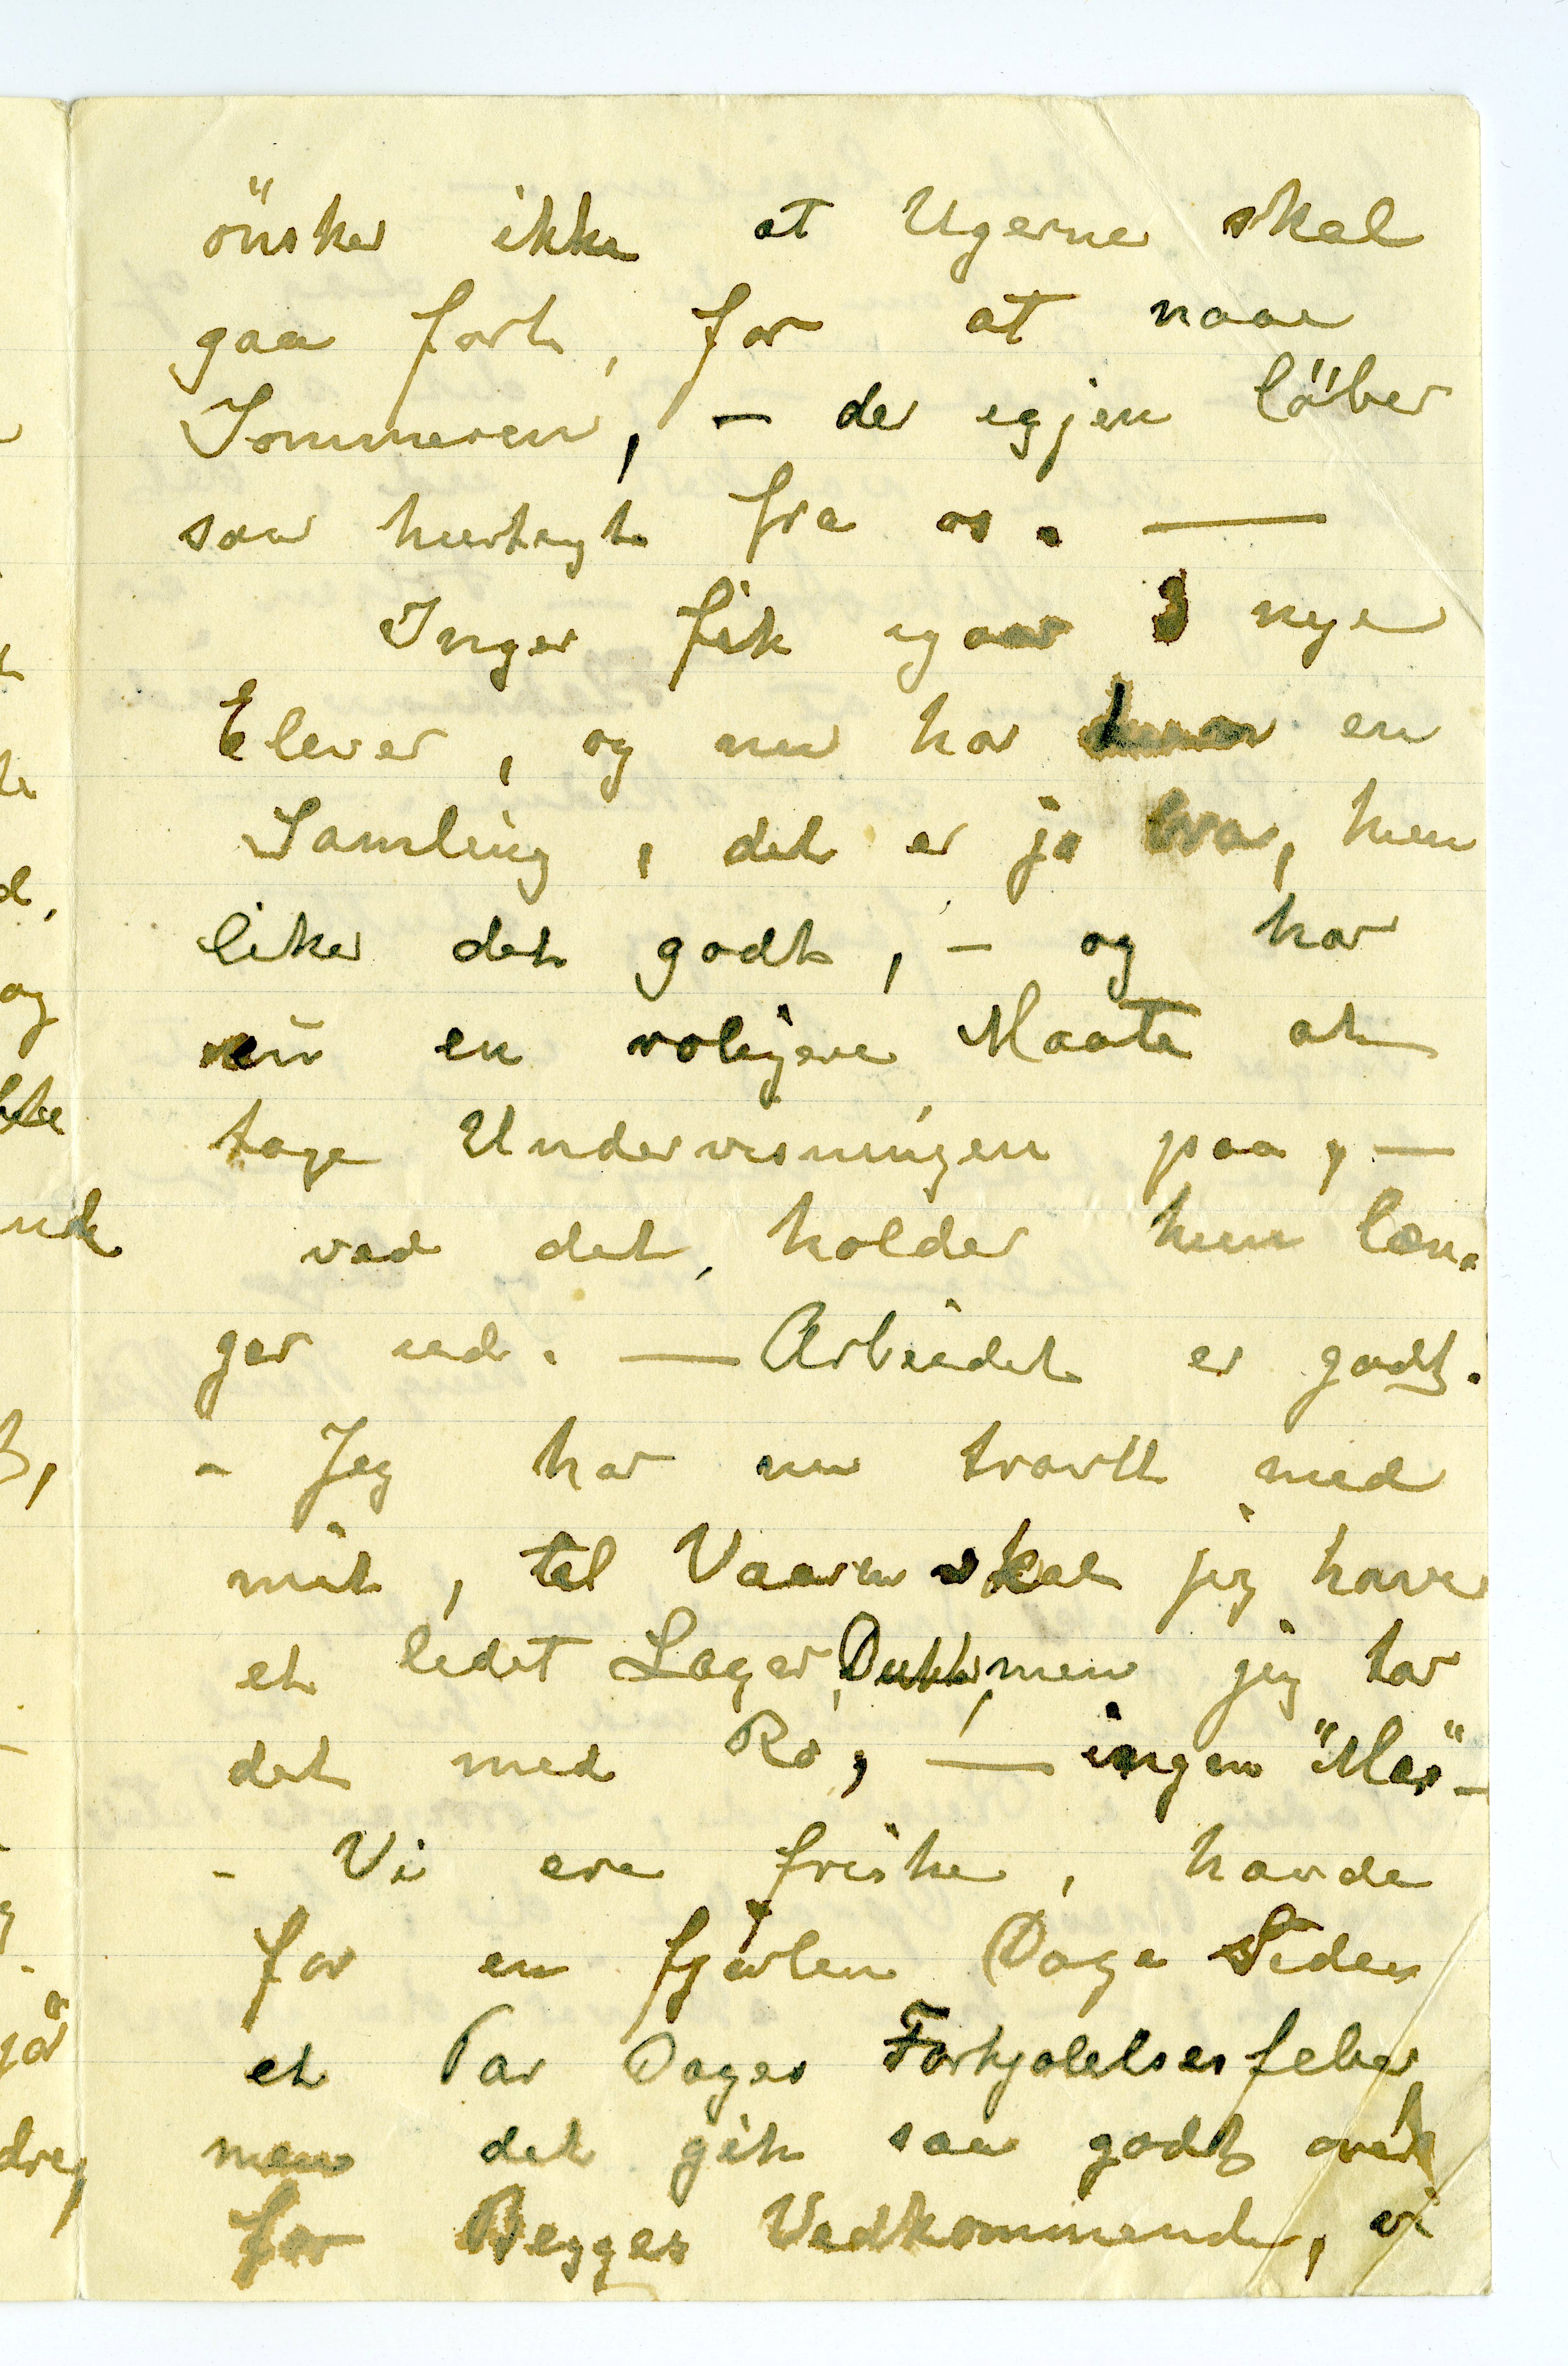 önsker ikke at Ugerne skal
gaa fort, for at naae
Sommeren, – der igjen löber
saa hurtigt fra os. —
Inger fik igaar 3 nye
Elever, og nu har hun en
Samling, det er jo bra, hun
liker det godt, – og har
nu en roligere Maate at
tage Undervisningen paa, —
ved det, holder hun læn-
ger ud. — Arbeidet er godt.
– Jeg har nu travlt med
mit, til Vaaren skal jeg have
et lidet Lager, Dukker, men jeg tar
det med Ro, — ingen "Mas" –
– Vi ere friske, havde
for en fjorten Dage Siden
et Par Dages Forkjølelsesfeber
men det gik saa godt over
for Begges Vedkommende, vi